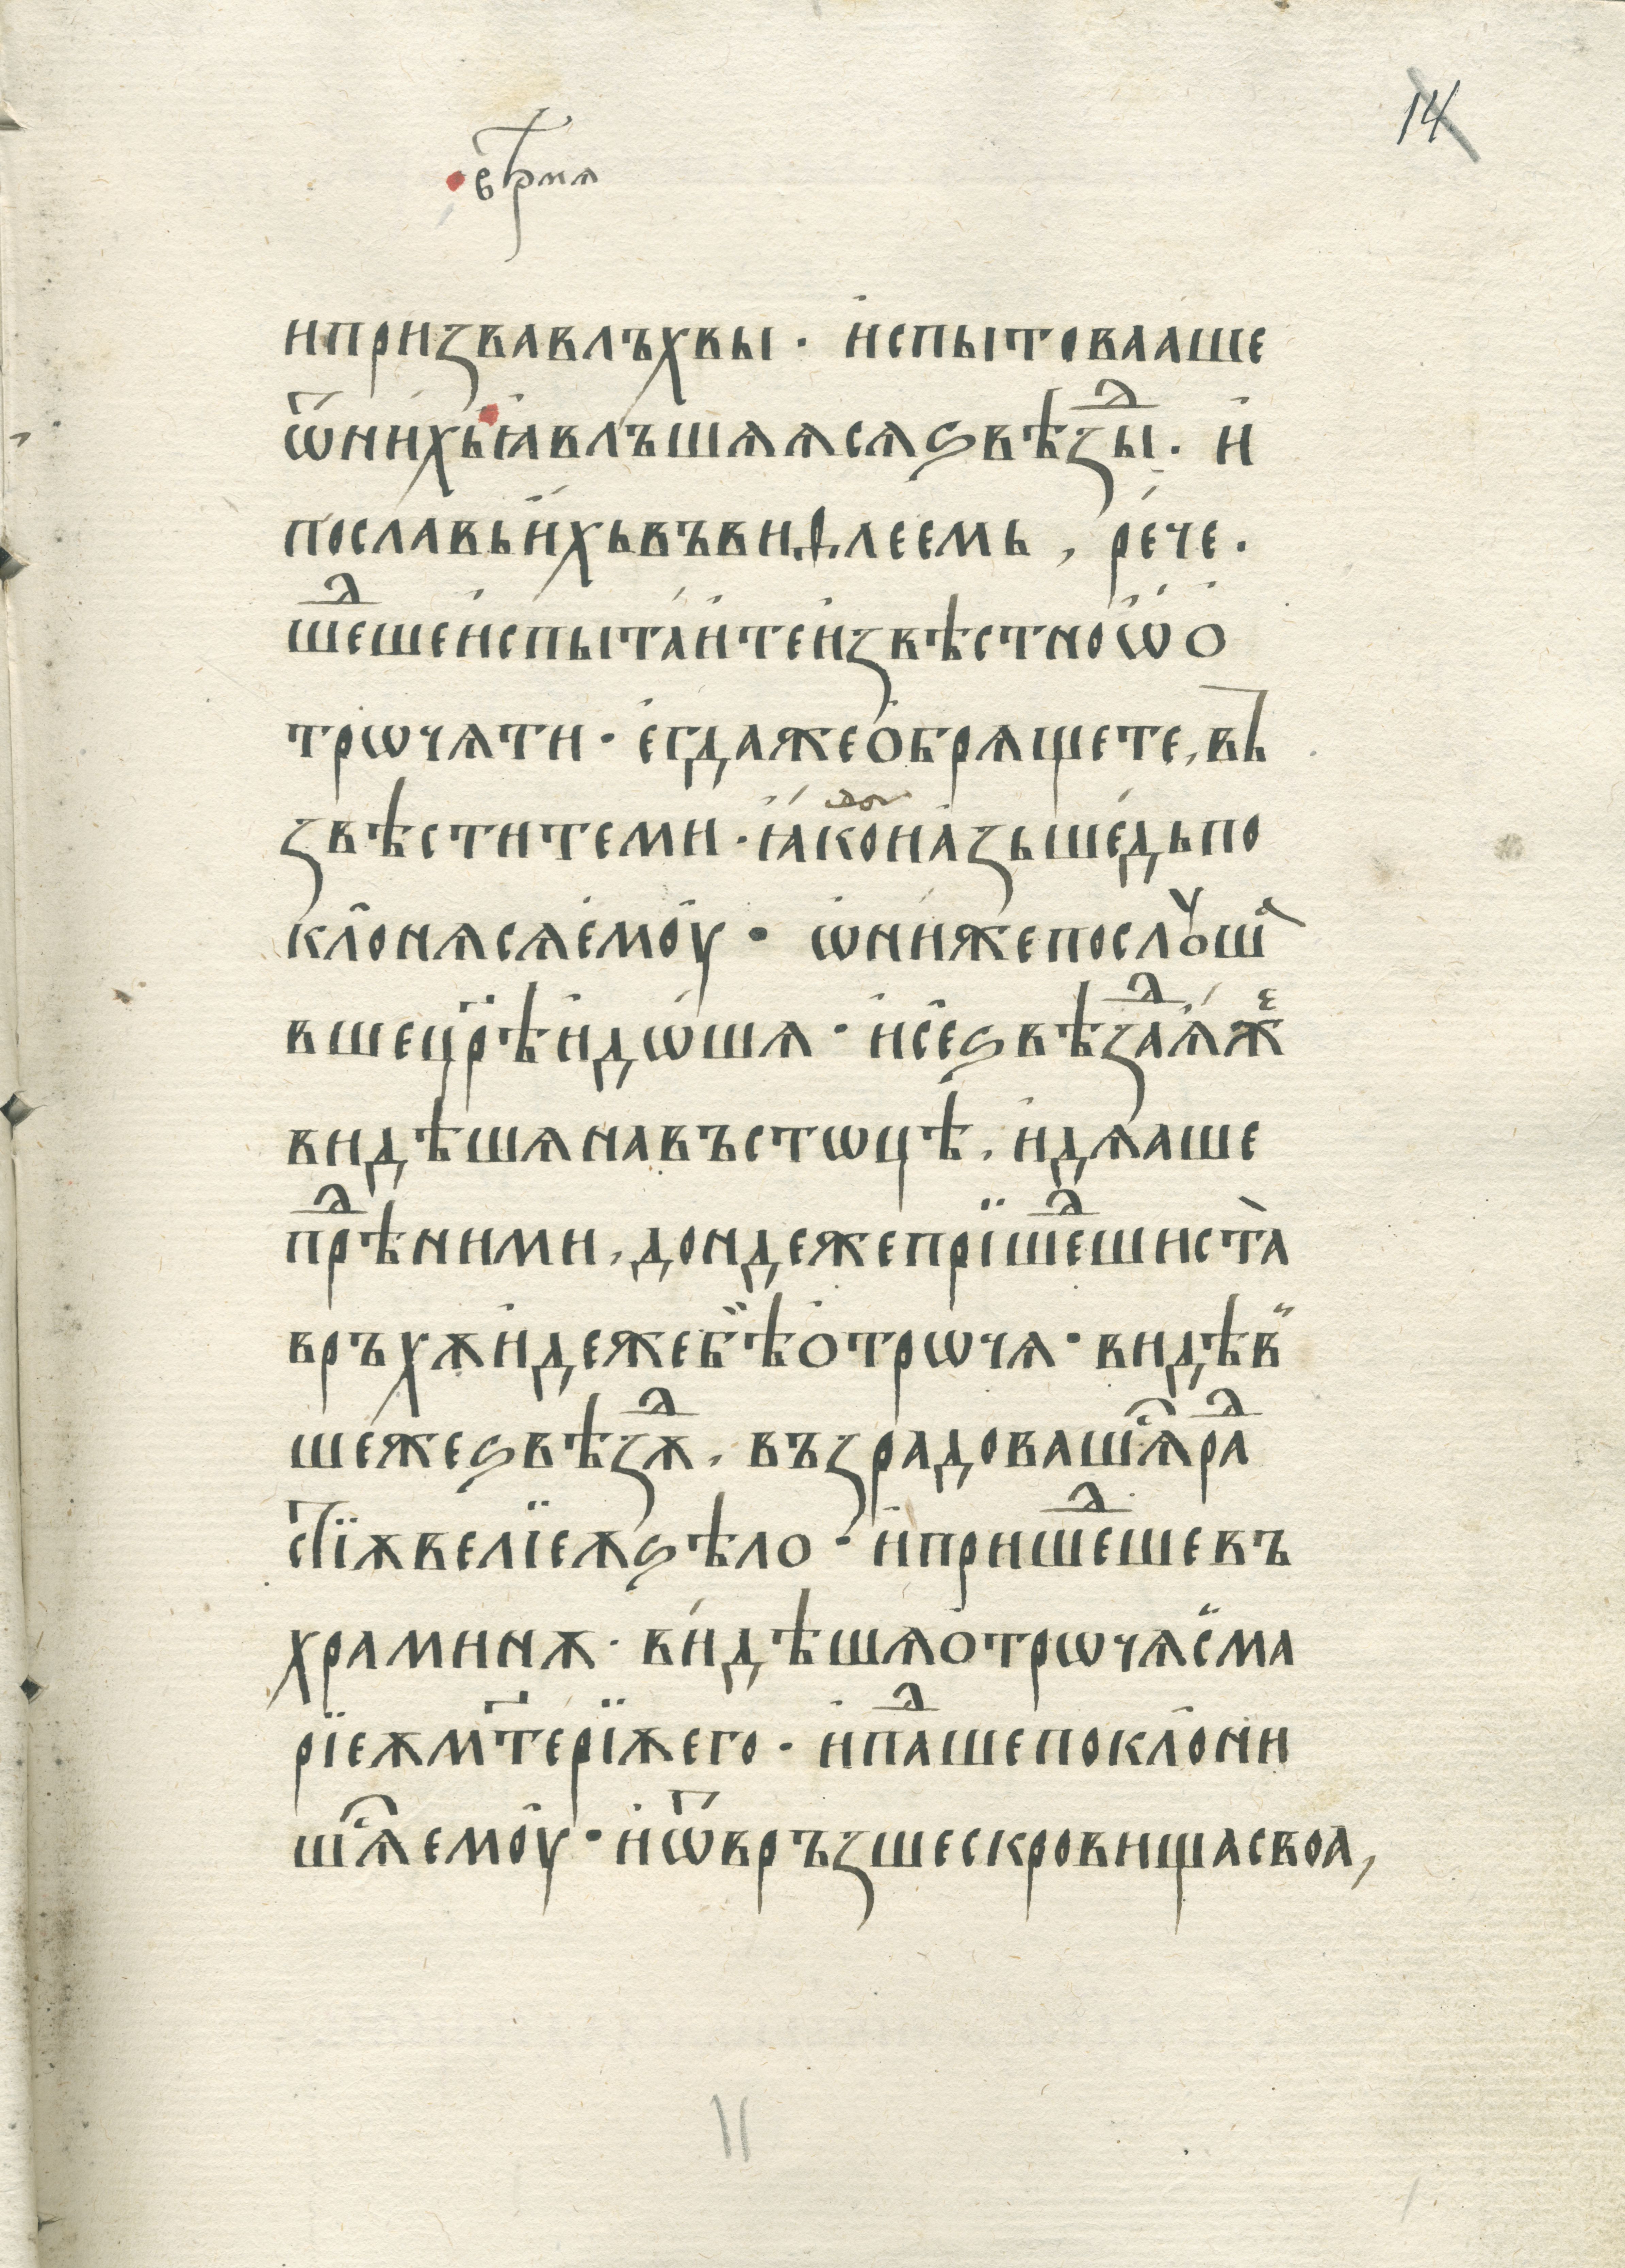 14
врѣмѧ
и призвавлъхвы · испытовааше
ѿнихьꙗвлъшѧѧсѧѕвѣзⷣы · и
пославьихьвъвиѳлеемь , рече ·
шеⷣшеиспытаитеизвѣстноѡо
трѡчѧти · егдажеобрѧщете , въ
звѣститеми · ꙗкоиазьшедьпо
клонѧсѧемоу · ѡнижепослꙋшаⷡ
вшецр҃ѣидѡшѧ · исеѕвѣзⷣаѧжⷷ
видѣшѧнавъстѡцѣ , идѧаше
прⷣѣними , дондежепрїшеⷣшиста
връхѫидежебѣотрѡчѧ · видѣв
шежеѕвѣзⷣѫ , възрадовашѧⷭраⷣ
стїѫвелїеѫѕѣло · ипришеⷣшевъ
храминѫ · видѣшѧотрѡчѧсма
рїеѫмт҃ерїѫего · ипаⷣшепоклони
шѧⷭемоу · иѿвръзшескровищасвоа ,
11